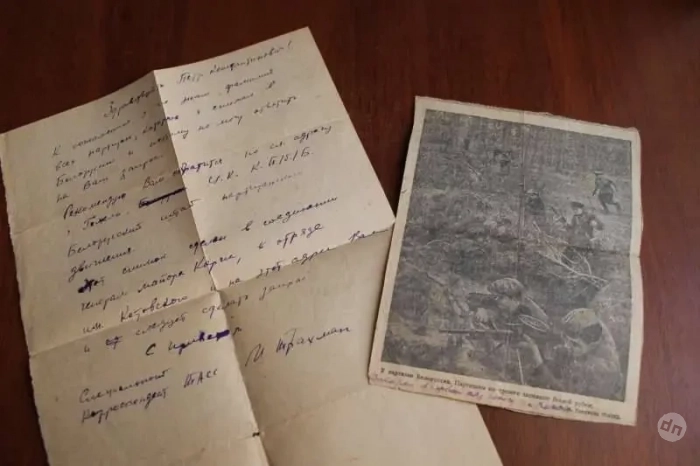 Здравствуйте Петр !
К сожалению, я не знаю фамилий
всех партизан, которых я снимал в
Белоруссии и поэтому не могу ответить
на Ваш вопрос.
Рекомендую Вам обратится по адресу
г. Гомель, Ц.К. К.П/б/Б
Белорусский штаб партизанского
движения.
Этот снимок сделан в соединении
генерал майора в отряде
им. Котовского на этот адрес Вам
и следует сделать запрос
С приветом
М Трахман
Специальный
корреспондент ТАСС
У партизан Белоруссии. Партизаны занимают боевой рубеж.
dn